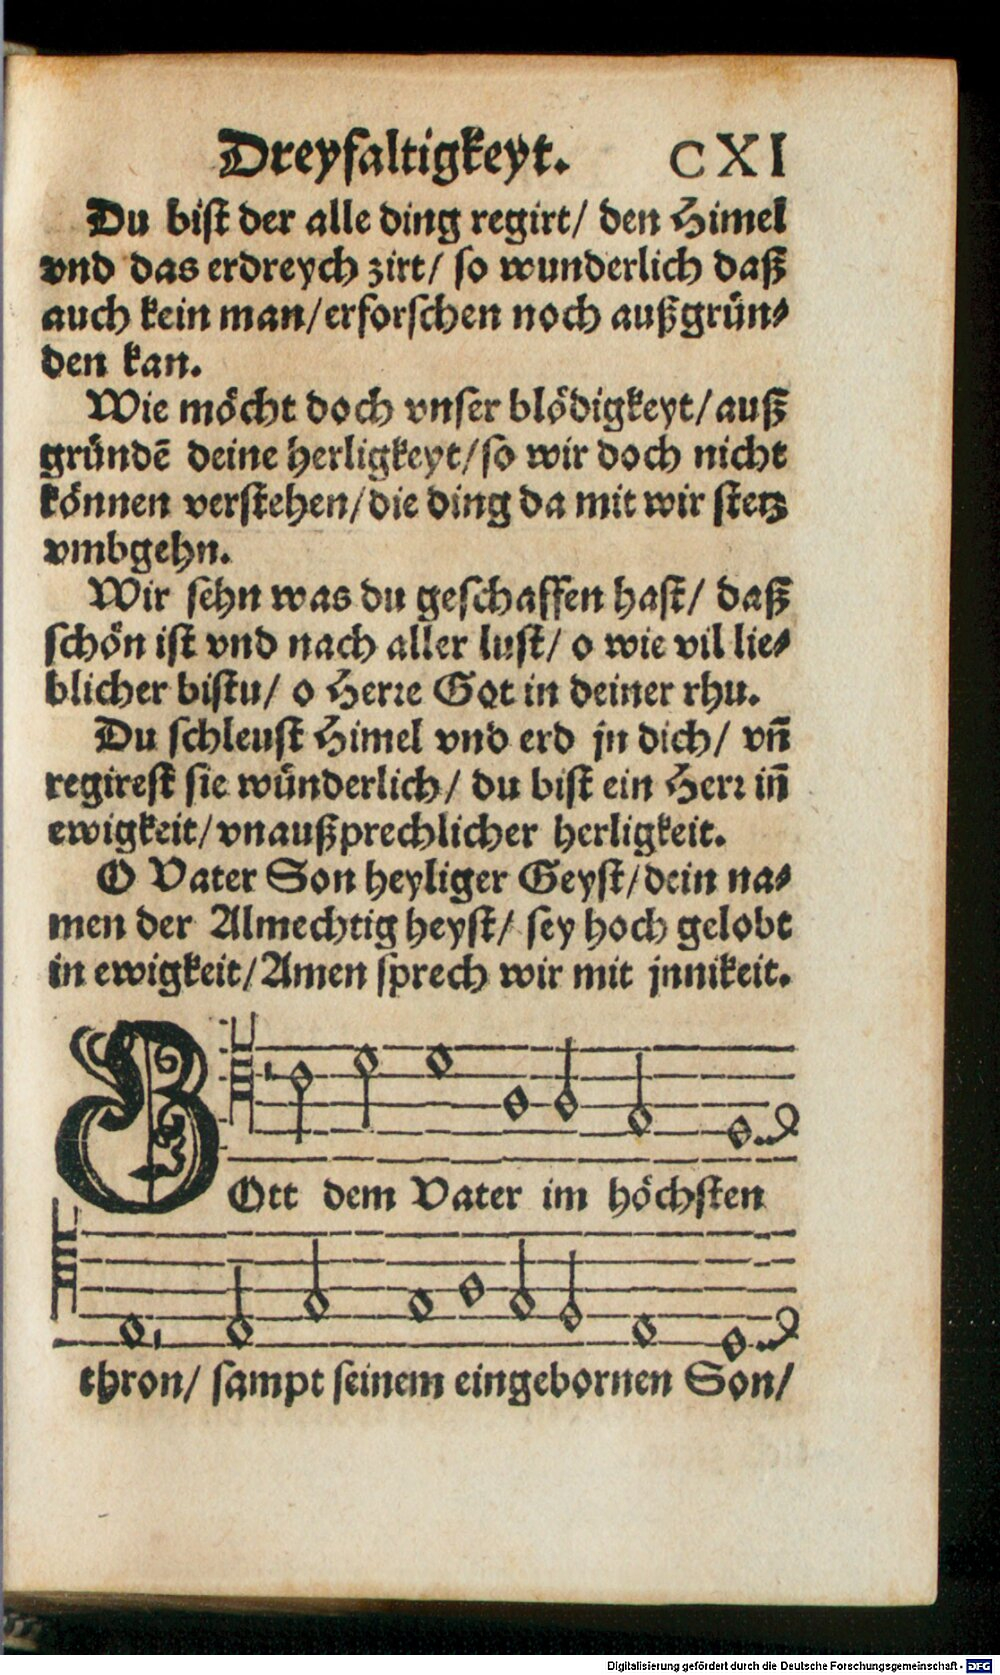 Dreyfaltigkeyt. CXI
Du bist der alle ding regirt/ den Himel
vnd das erdreych zirt/ so wunderlich daß
auch kein man/erforschen noch außgrün⸗
den kan.
Wie möcht doch vnser blödigkeyt/auß
gründē deine herligkeyt/so wir doch nicht
können verstehen/die ding da mit wir stetz
vmbgehn.
Wir sehn was du geschaffen hast/ daß
schön ist vnd nach aller lust/ o wie vil lie⸗
blicher bistu/ o Herre Got in deiner rhu.
Du schleust Himel vnd erd jn dich/ vñ
regirest sie wünderlich/ du bist ein Herr iñ
ewigkeit/vnaußprechlicher herligkeit.
O Vater Son heyliger Geyst/dein na⸗
men der Almechtig heyst/ sey hoch gelobt
in ewigkeit/Amen sprech wir mit jnnikeit.
GOtt dem Vater im höchsten
thron/ sampt seinem eingebornen Son/
Digitalisierung gefördert durch die Deutsche Forschungsgemeinschaft - DFG